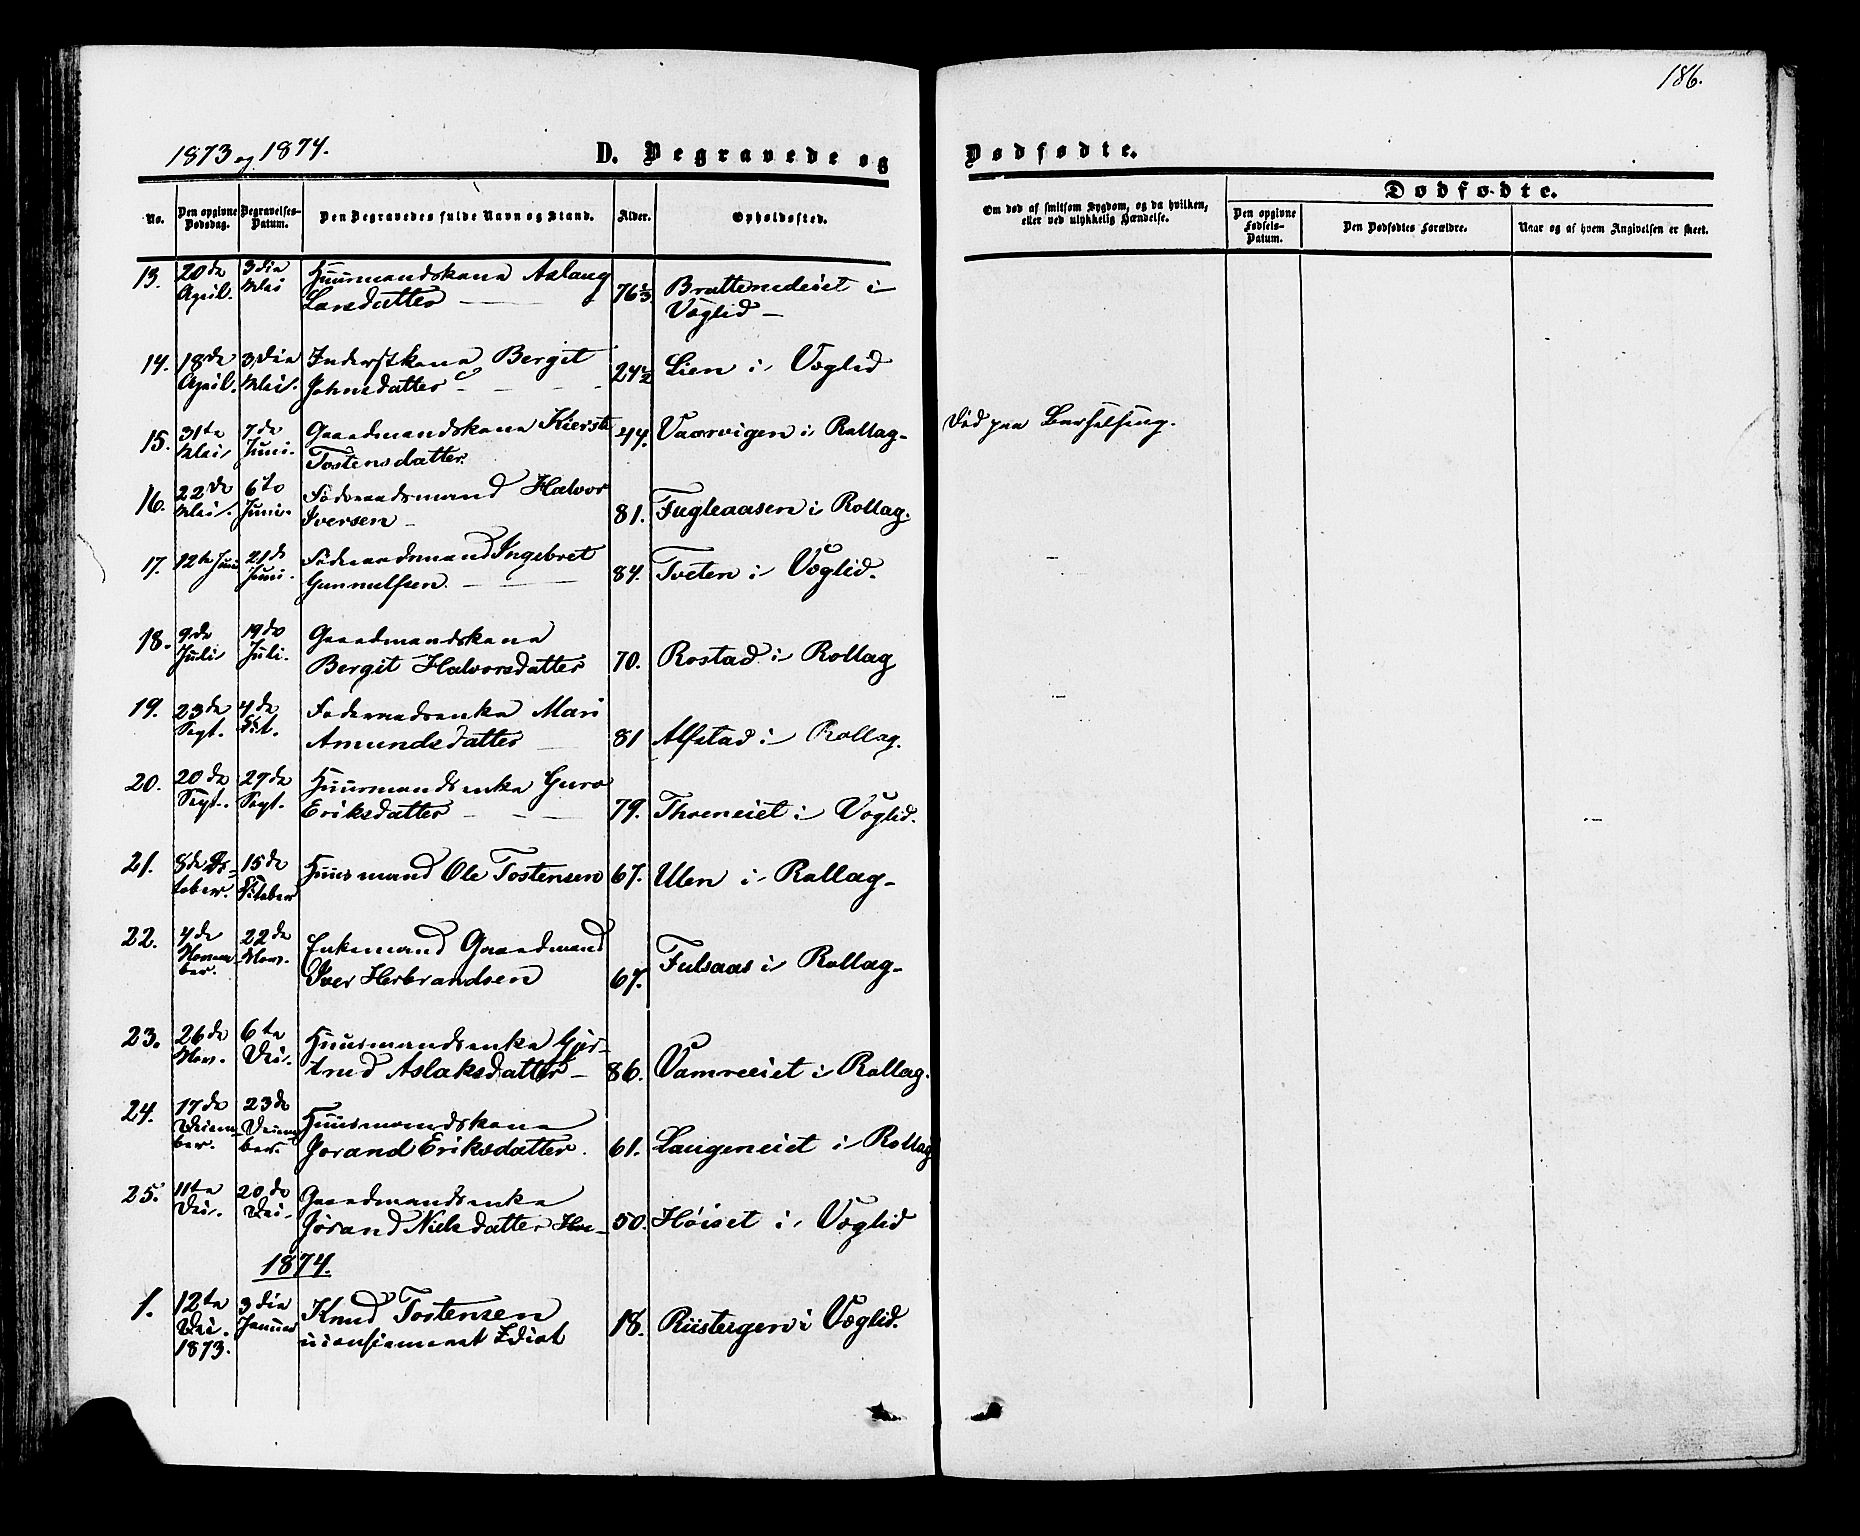 186.
1873 og 1874.
D. Begravede og Dødfødte.
Dødfødte.
No.
Den opgivne Dødsdag.
Begravelses-Datum.
Den Begravedes fulde Navn og Stand.
Alder.
Opholdssted.
Om død af smitsom Sygdom, og da hvilken, eller ved ulykkelig Hændelse.
Den opgivne Fødsels-Datum.
Den Dødfødtes Forældre.
Naar og af hvem Angivelsen er skeet.
13. 20de April. 3die Mai Huusmandskone Aslaug Larsdatter 76 1/3 Brattenedeiet i Væglid
14. 18de April. 3die Mai. Inderstkone Bergit Johnsdatter 24 1/2 Lien i Væglid
15. 31te Mai 7de Juni. Gaardmandskone Kiersti Tostensdatter 44. Vaarvigen i Rollag Død paa Barselseng.
16. 22de Mai. 6te Juni. Føderaadsmand Halvor Iversen 81. Fugleaasen i Rollag.
17. 12te Juni 21de Juni. Føderaadsmand Ingebret Gunnulfsen. 84. Tveten i Væglid.
18. 9de Juli 19de Juli. Gaardmandskone Bergit Halvorsdatter 70. Rostad i Rollag
19. 23de Sept. 4de Oct. Føderaadsenke Mari Amundsdatter 81 Alfstad i Rollag.
20. 20de Sept. 27de Sept. Huusmandsenke Guro Eriksdatter 79. Throneiet i Væglid.
21. 8de October. 15de October Huusmand Ole Tostensen 67. Ulen i Rollag
22. 4de November. 22de Nov. Enkemand Gaardmand Iver Herbrandsen 67. Fulsaas i Rollag
23. 26de Nov. 6te Dec. Huusmandsenke Gjertrud Aslaksdatter 86. Vamreeiet i Rollag.
24. 17de December. 23de December. Huusmandskone Jorand Eriksdatter. 61. Laugeneiet i Rollag
25. 11te Dec. 20de Dec. Gaardmandsenke Jørand Nielsdatter 50. Høiset i Væglid
1874.
1. 12te Dec. 1873. 3die Januar Knud Tostensen uconfirmeret Idiot 18. Riisteigen i Væglid.